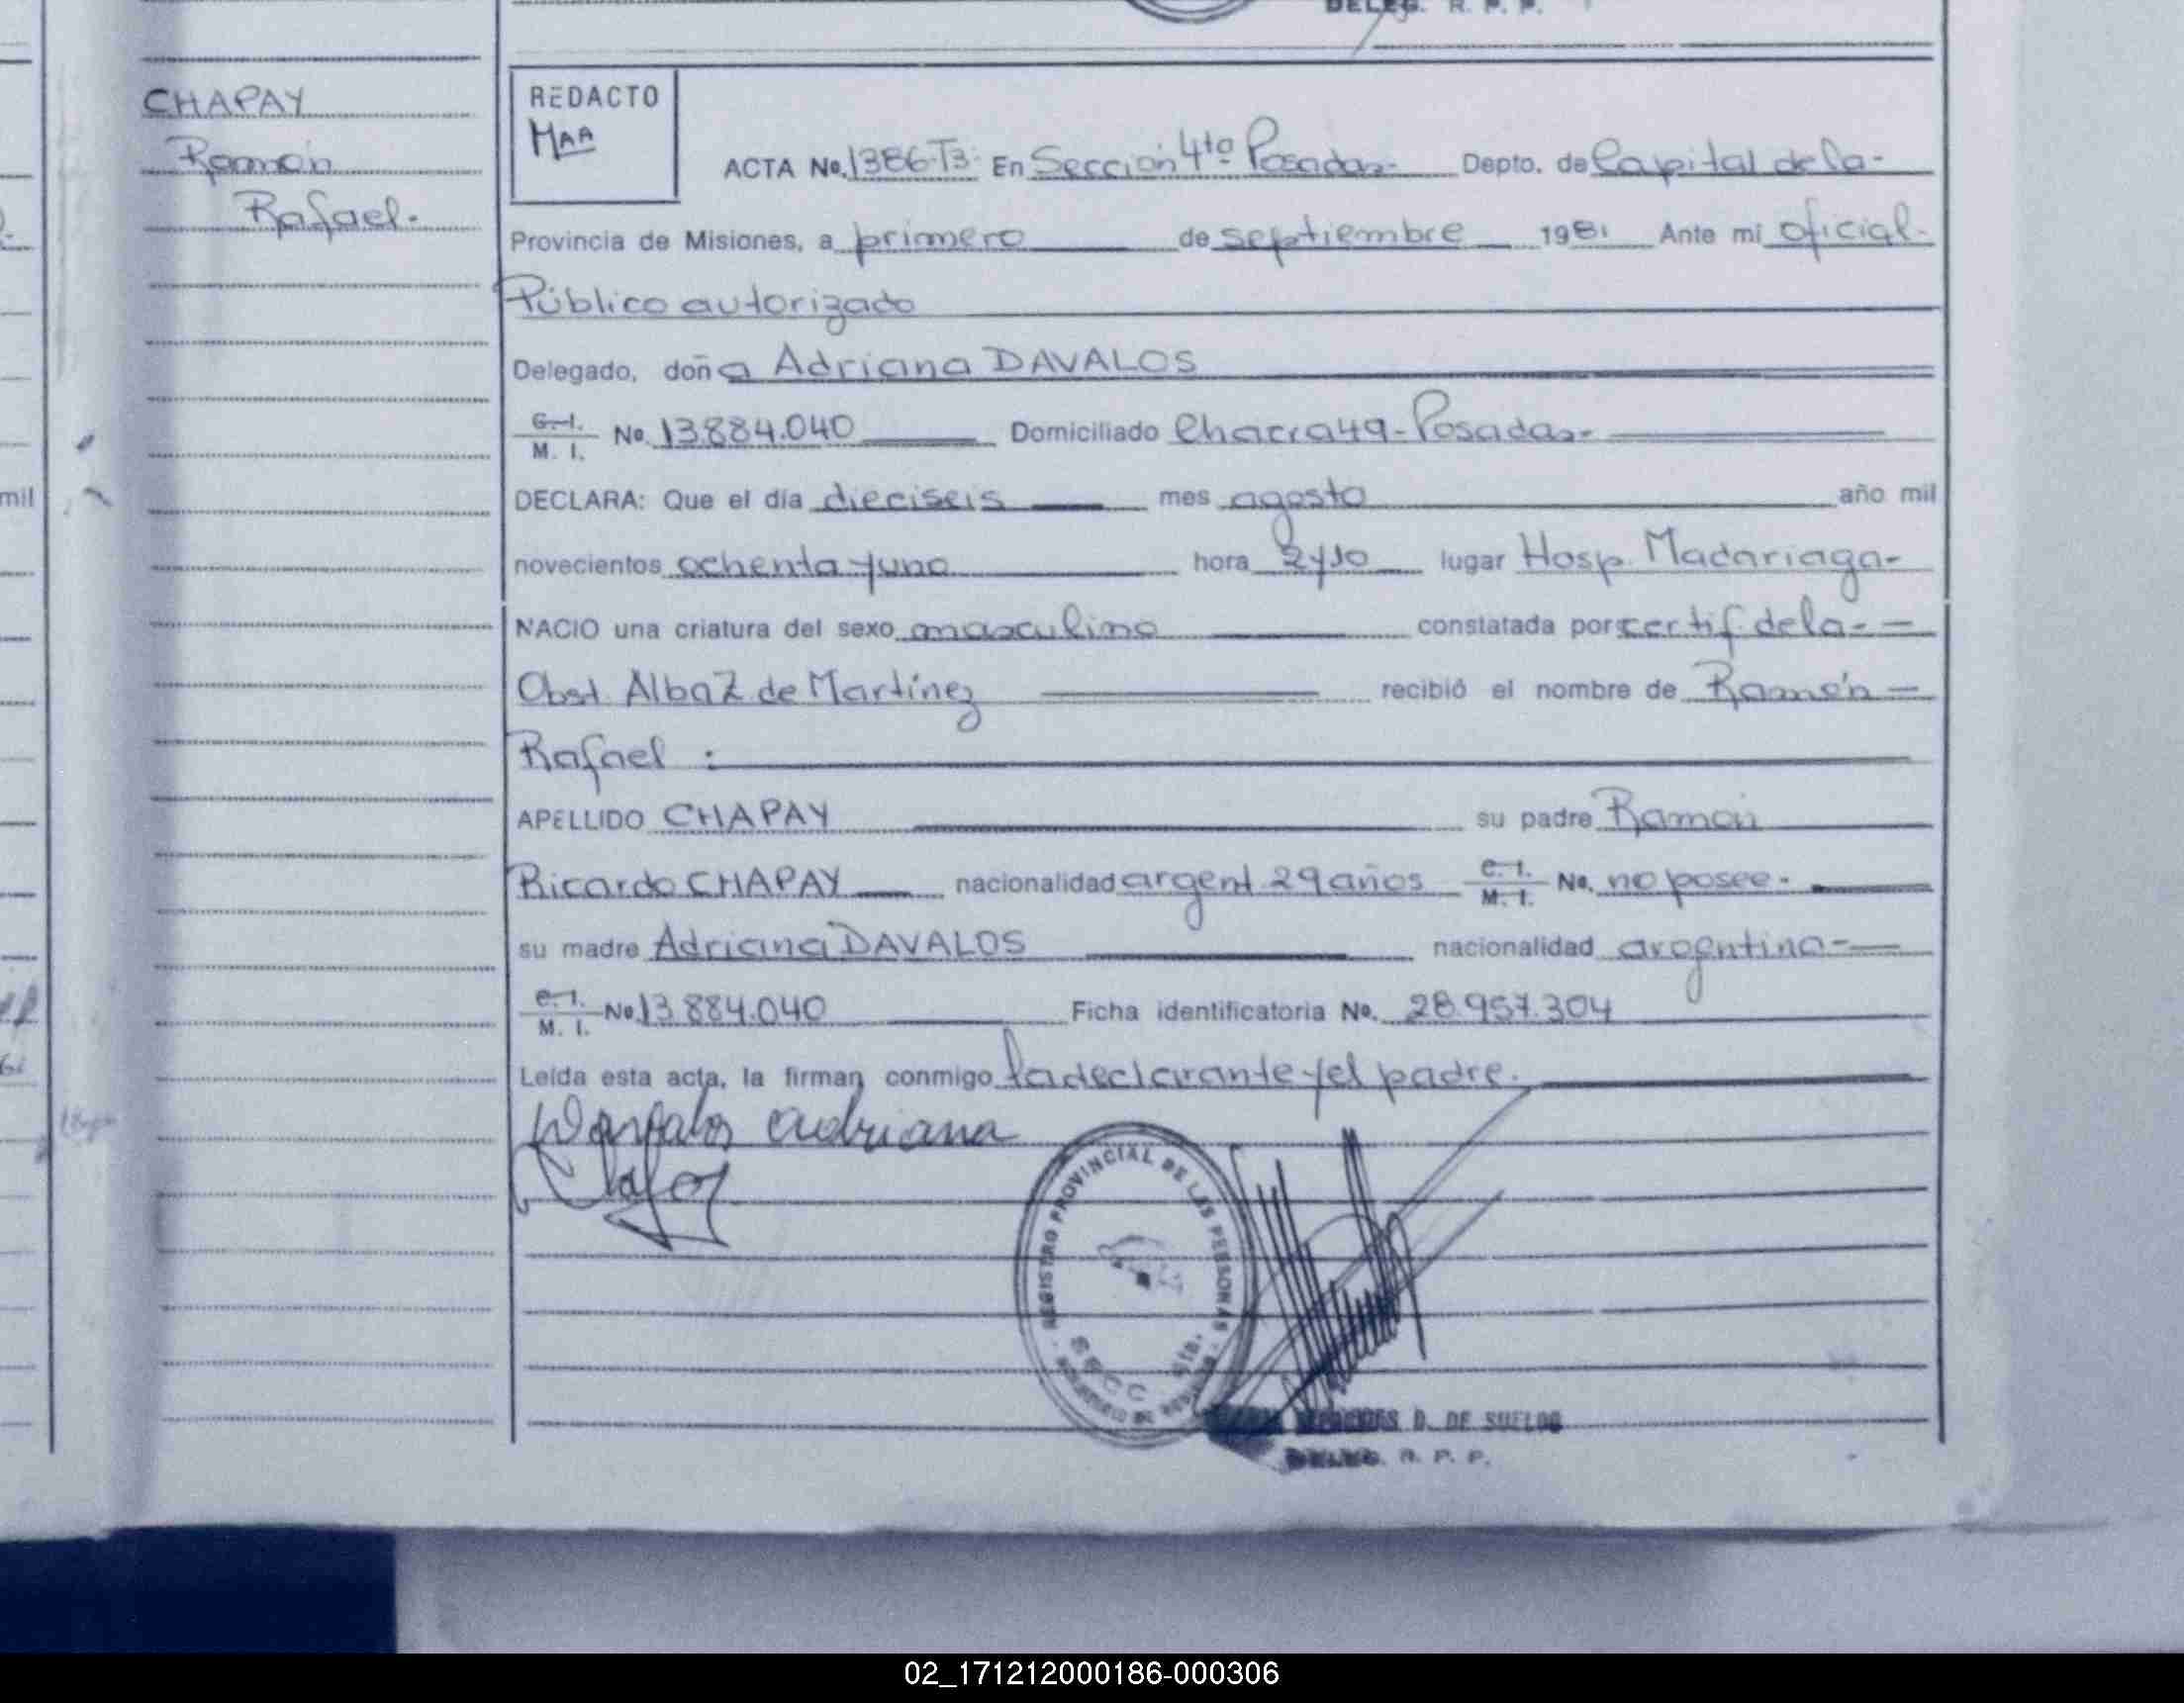 DELEG. R. P. P.
CHAPAY
Ramón
Rafael.
REDACTO
MAA
ACTA No. 1386-T3- En Sección 4ta Posadas- Depto. de Capital de la-
Provincia de Misiones, a primero de septiembre 1981 Ante mi oficial-
Público autorizado
Delegado, doña Adriana DAVALOS
C. I. / M. I. No. 13.884.040 Domiciliado Chacra 49-Posadas-
DECLARA: Que el día dieciseis mes agosto año mil
novecientos ochenta y uno hora 2y10 lugar Hosp. Madariaga-
NACIO una criatura del sexo masculino constatada por certif de la-
Obst Alba Z de Martínez recibió el nombre de Ramón
Rafael :
APELLIDO CHAPAY su padre Ramón
Ricardo CHAPAY nacionalidad argent 29 años C. I. / M. I. No. no posee-
su madre Adriana DAVALOS nacionalidad argentina-
C. I. / M. I. No 13.884.040 Ficha identificatoria No. 28.957.304
Leída esta acta, la firman conmigo la declarante y el padre.
Adriana
REGISTRO PROVINCIAL DE LAS PERSONAS
D. DE SUELOS
DELEG. R. P. P.
mil
02_171212000186-000306